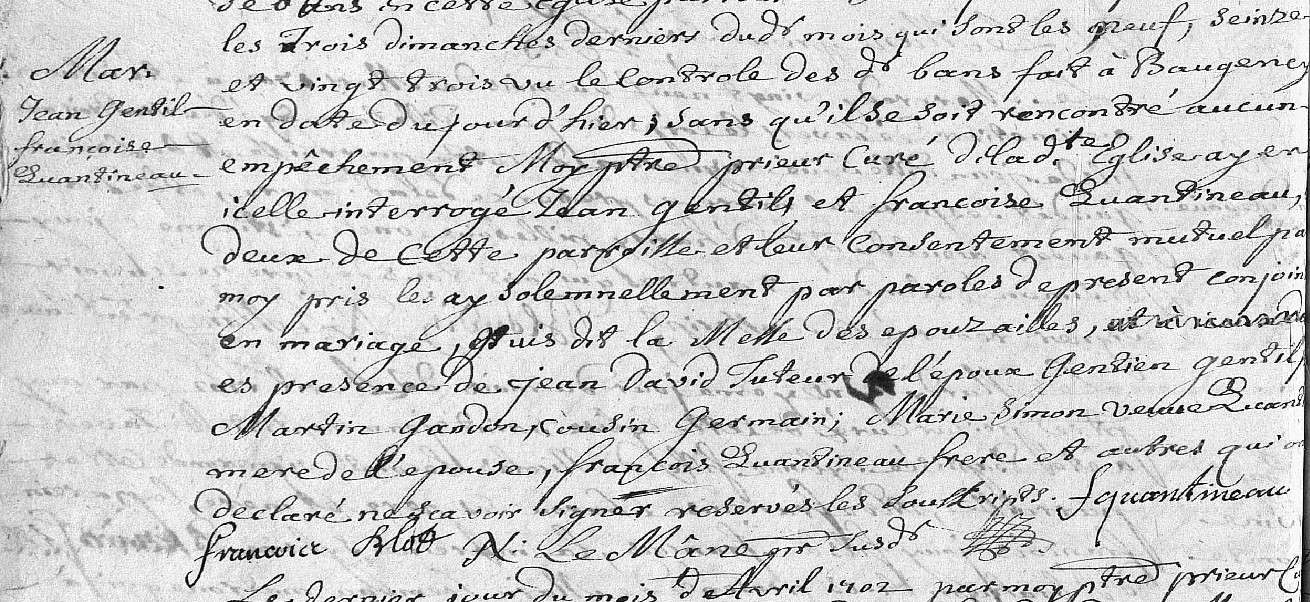 de bans en cette Eglise par
les Trois dimanches derniers dud.t mois qui sont les neuf, seinze
et vingt trois vu le Controle des d.s bans fait à Baugency
en date du jour d'hier, sans qu'il se soit rencontré aucun
empêchement Moy ptre prieur Curé de lad.te Eglise ay en
icelle interrogé Jean gentil, et francoise Quantineau,
deux de Cette parroisse et leur Consentement mutuel pa
moy pris les ay solemnellement par paroles de present conjoin
en mariage, Puis dit la Messe des epouzailles,
es presence de jean David Tuteur de l'époux Gentien gentil,
Martin Gandon, Cousin Germain; Marie Simon veuve Quant
mere de l'epouse, françois Quantineau frere et autres qui o
declaré ne scavoir signer reservés les souscripts. fquantineau
N. Le Mâne pr susd.t
Le dernier jour du mois d'Avril 1702 par moy ptre prieur C
Mar.
Jean Gentil
françoise
Quantineau